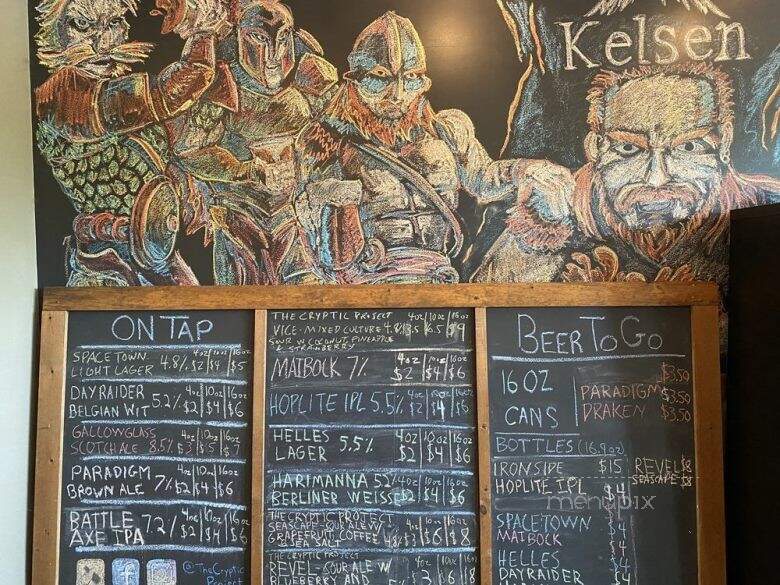 Kelsen
ON TAP
SPACE TOWN 4oz 10oz 16oz
LIGHT LAGER 4.8% $2 $4 $5
DAYRAIDER 4oz 10oz 16oz
BELGIAN WIT 5.2% $2 $4 $6
GALLOWGLASS 4oz 10oz 16oz
SCOTCH ALE 8.5% $3 $5 $7
PARADIGM 4oz 10oz 16oz
BROWN ALE 7% $2 $4 $6
BATTLE 4oz 10oz 16oz
AXE IPA 7.2% $2 $4 $6
@TheCryptic
Project
THE CRYPTIC PROJECT 4oz 10oz 16oz
VICE-MIXED CULTURE 4.8% $3.5 $6.5 $9
SOUR W COCONUT, PINEAPPLE
& STRAWBERRY
MAIBOCK 7% 4oz 10oz 16oz
$2 $4 $6
HOPLITE IPL 5.5% 4oz 10oz 16oz
$2 $4 $6
HELLES 4oz 10oz 16oz
LAGER 5.5% $2 $4 $6
HARIMANNA 5.2% 4oz 10oz 16oz
BERLINER WEISSE $2 $4 $6
THE CRYPTIC PROJECT
SEASCAPE-SOUR ALE W/ 4oz 10oz 16oz
GRAPEFRUIT, COFFEE 4.8% $3 $6 $8
& SEA SALT
THE CRYPTIC PROJECT
REVEL-SOUR ALE W 4oz 10oz 16oz
BLUEBERRY AND $3 $6 $8
BEER TO GO
16 OZ
CANS
PARADIGM $3.50
DRAKEN $3.50
$3.50
BOTTLES (16.9oz)
IRONSIDE $15 REVEL $8
HOPLITE IPL $4 SEASCAPE $8
menupix
SPACETOWN $4
MAIBOCK $4
HELLES $4
DAYRAIDER $4